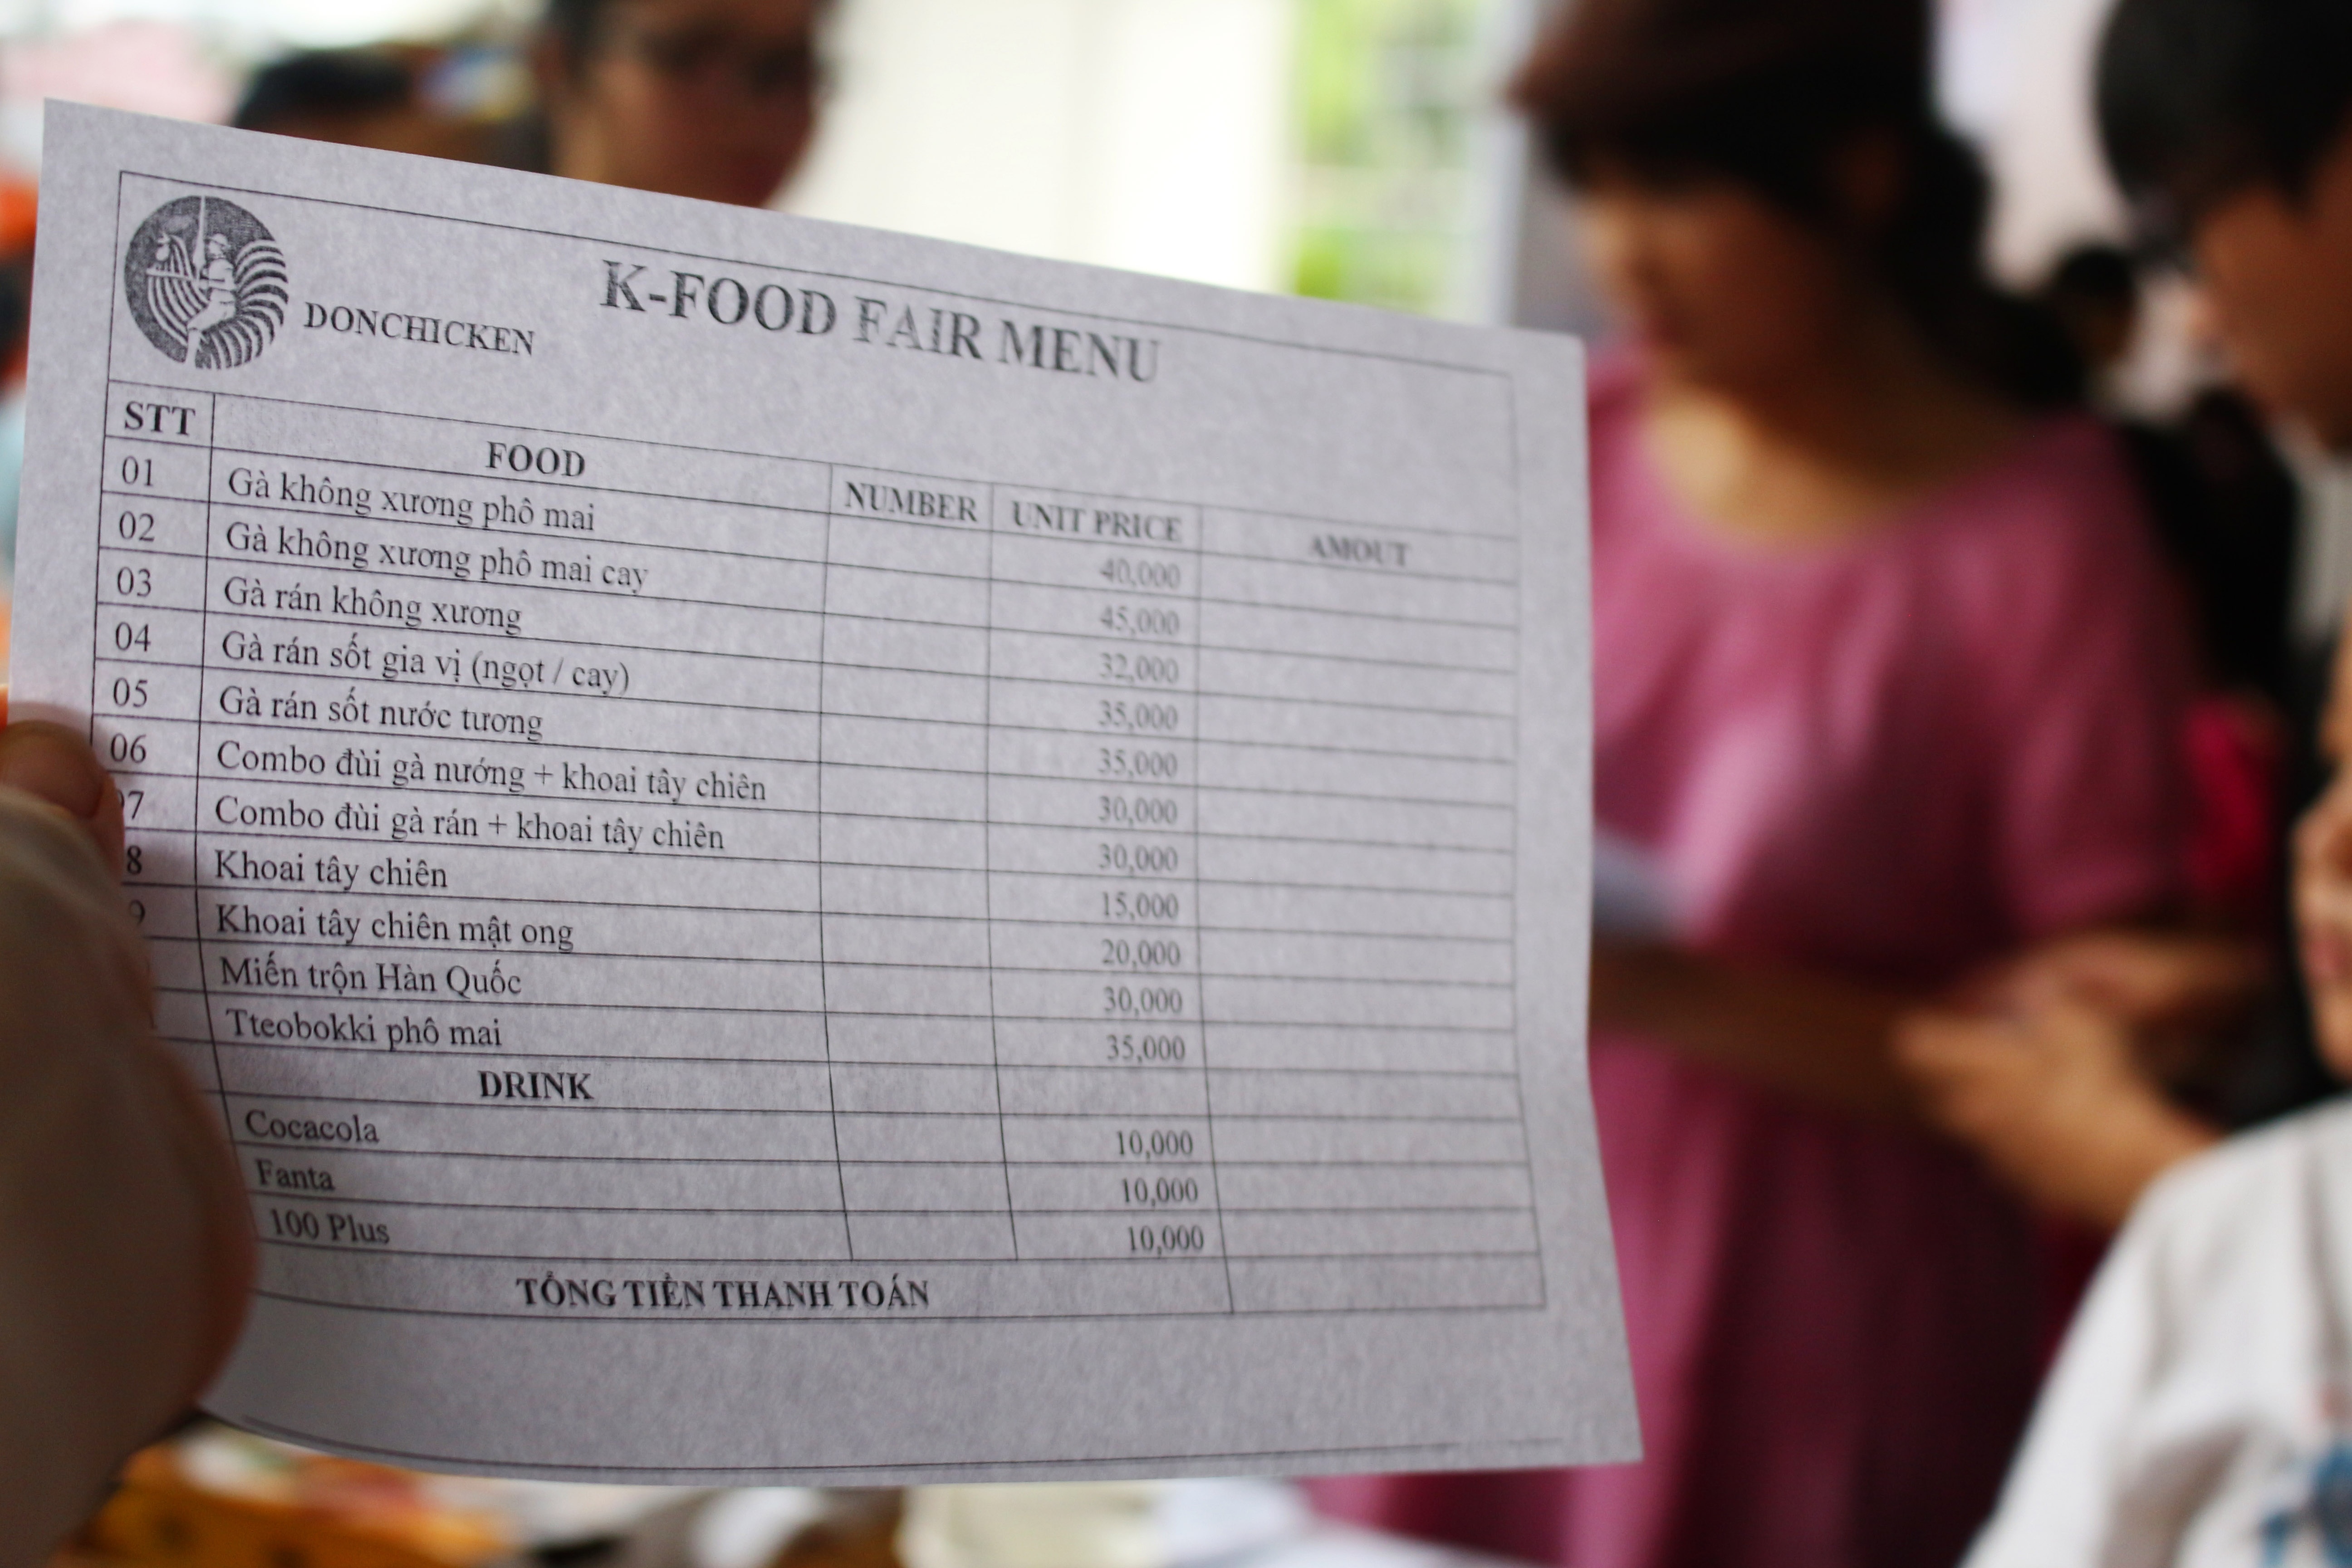 DONCHICKEN
K-FOOD FAIR MENU
STT FOOD NUMBER UNIT PRICE AMOUT
01 Gà không xương phô mai 40,000
02 Gà không xương phô mai cay 45,000
03 Gà rán không xương 32,000
04 Gà rán sốt gia vị (ngọt / cay) 35,000
05 Gà rán sốt nước tương 35,000
06 Combo đùi gà nướng + khoai tây chiên 30,000
7 Combo đùi gà rán + khoai tây chiên 30,000
8 Khoai tây chiên 15,000
9 Khoai tây chiên mật ong 20,000
Miến trộn Hàn Quốc 30,000
Tteobokki phô mai 35,000
DRINK
Cocacola 10,000
Fanta 10,000
100 Plus 10,000
TỔNG TIỀN THANH TOÁN